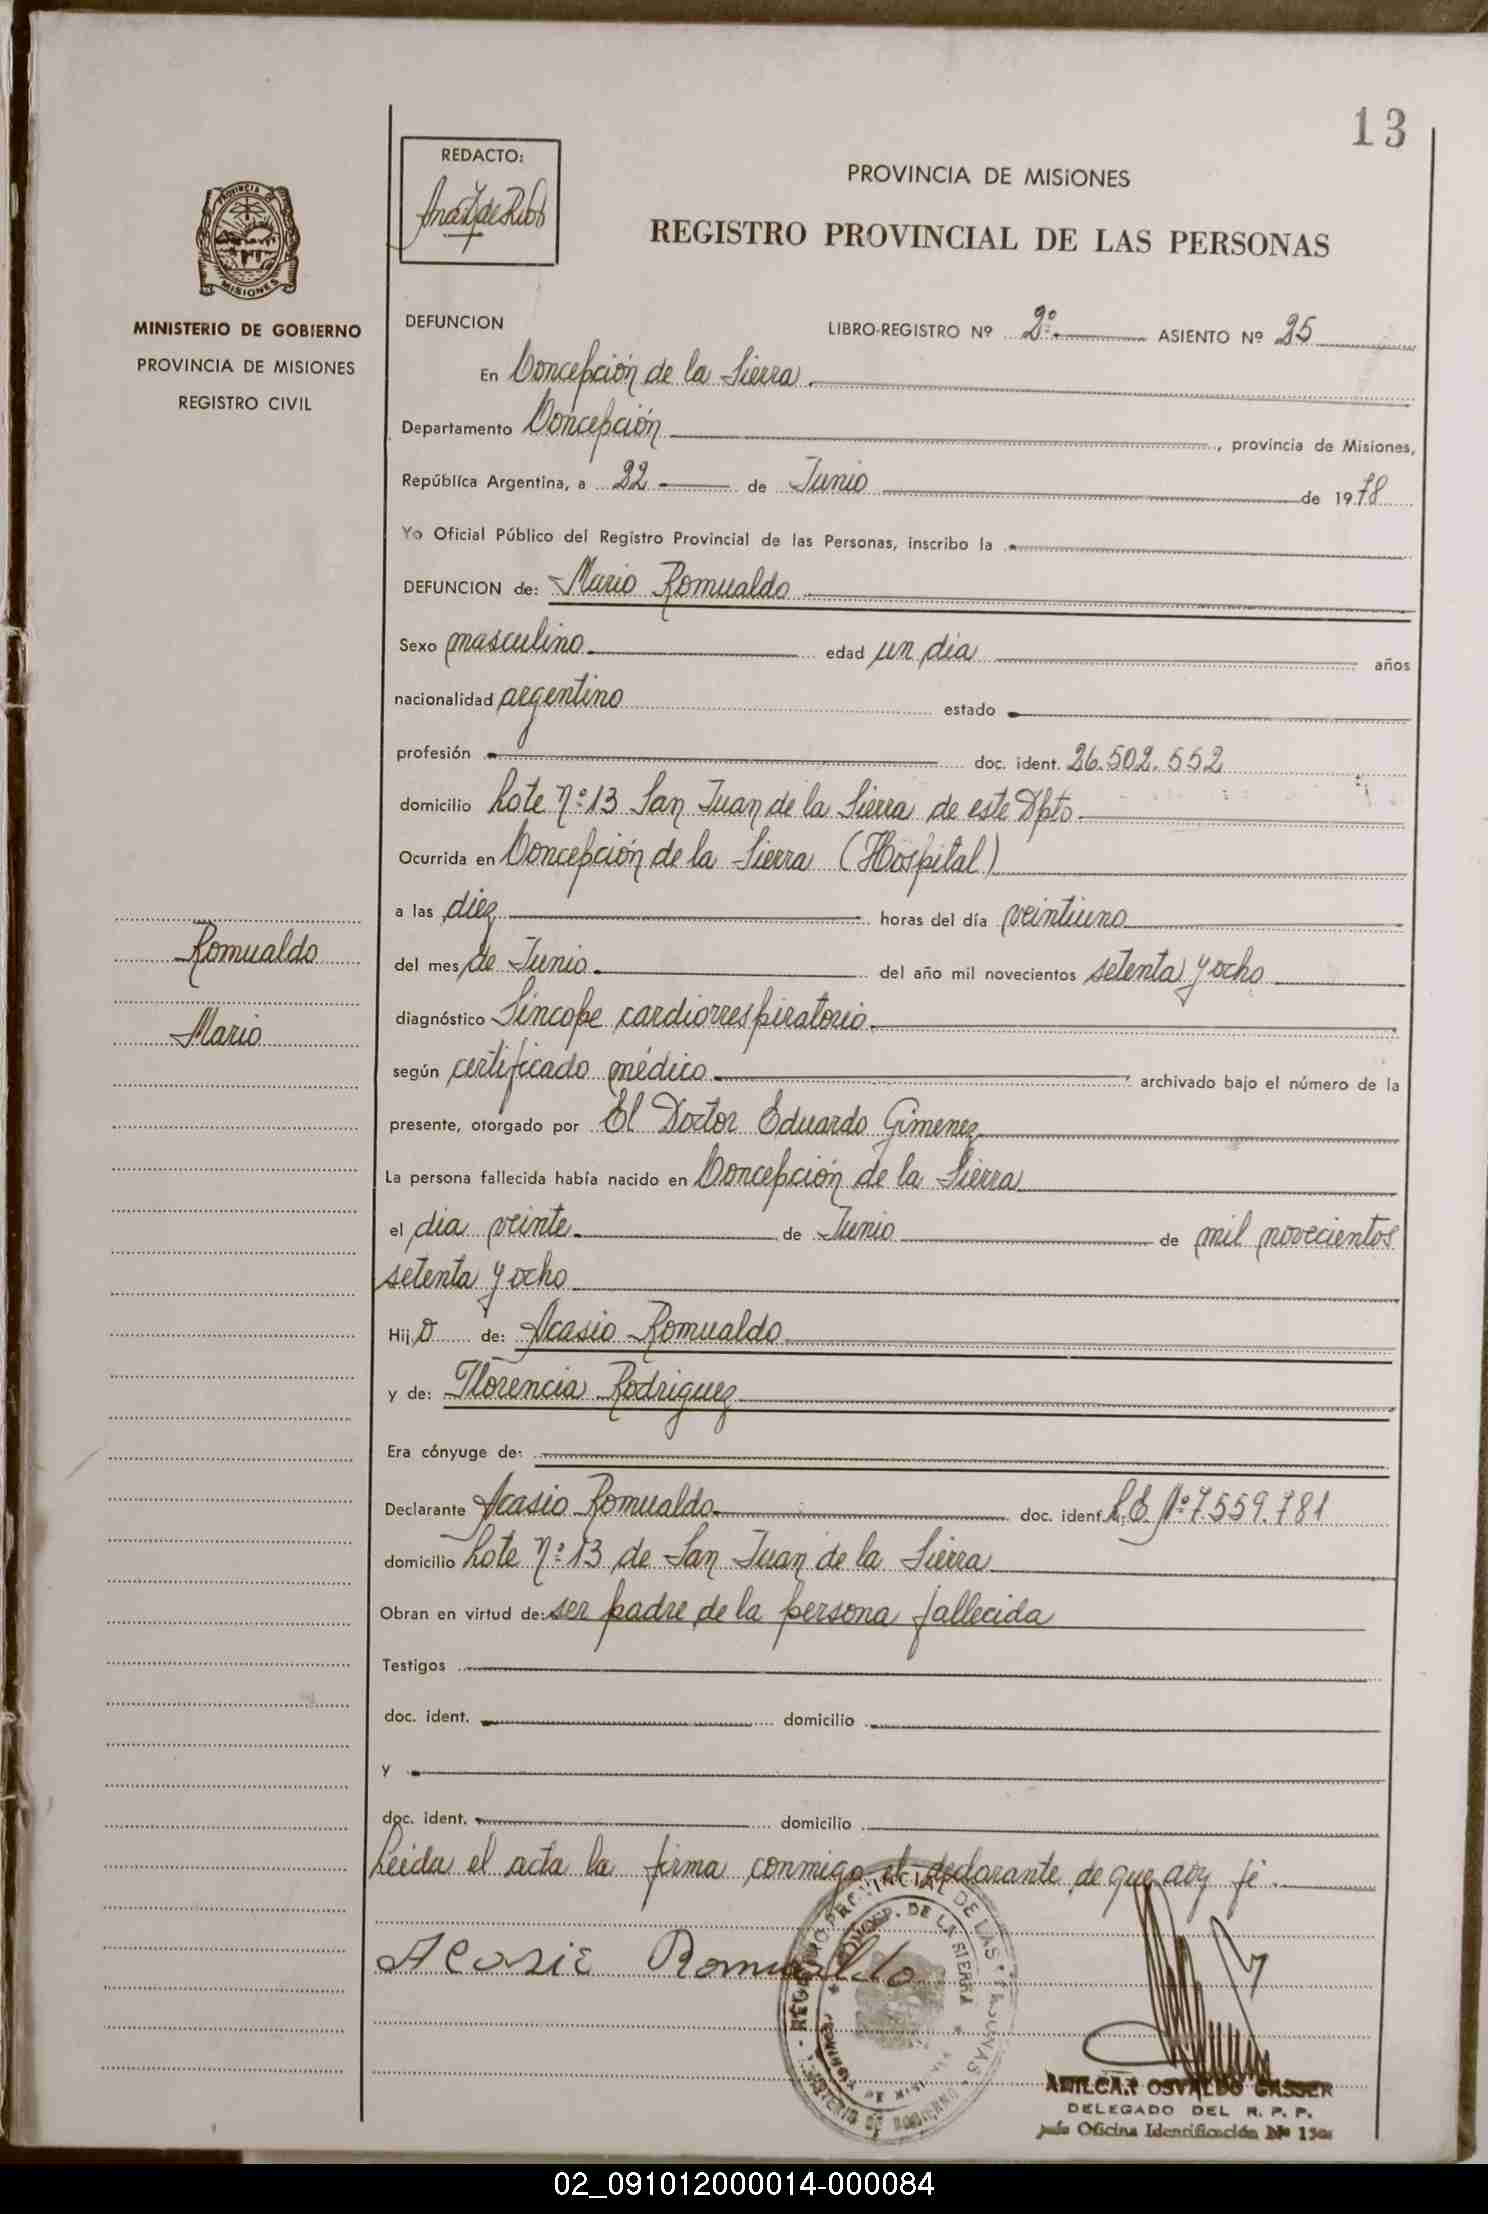 13
REDACTO:
PROVINCIA DE MISIONES
REGISTRO PROVINCIAL DE LAS PERSONAS
PROVINCIA DE
MISIONES
MINISTERIO DE GOBIERNO
PROVINCIA DE MISIONES
REGISTRO CIVIL
DEFUNCION LIBRO-REGISTRO Nº 2º ASIENTO Nº 25
En Concepción de la Sierra
Departamento Concepción, provincia de Misiones,
República Argentina, a 22 de Junio de 1978
Yo Oficial Público del Registro Provincial de las Personas, inscribo la
DEFUNCION de: Mario Romualdo
Sexo masculino edad un día años
nacionalidad argentino estado
profesión doc. ident. 26.502.552
domicilio Lote nº 13 San Juan de la Sierra de este Dpto.
Ocurrida en Concepción de la Sierra (Hospital)
a las diez horas del día veintiuno
Romualdo
Mario
del mes de Junio del año mil novecientos setenta y ocho
diagnóstico Síncope cardiorrespiratorio
según certificado médico archivado bajo el número de la
presente, otorgado por El Doctor Eduardo Gimenez
La persona fallecida había nacido en Concepción de la Sierra
el día veinte de Junio de mil novecientos
setenta y ocho
Hijo de: Acasio Romualdo
y de: Florencia Rodriguez
Era cónyuge de:
Declarante Acasio Romualdo doc. ident. L.E. Nº 7.559.781
domicilio Lote nº 13 de San Juan de la Sierra
Obran en virtud de: ser padre de la persona fallecida
Testigos
doc. ident. domicilio
y
doc. ident. domicilio
Leida el acta la firma conmigo el declarante de que doy fé.
Acosie Romualdo
REGISTRO PROVINCIAL DE LAS PERSONAS
CONCEP. DE LA SIERRA
PROVINCIA DE MISIONES
MINISTERIO DE GOBIERNO
AMILCAR OSVALDO GASSER
DELEGADO DEL R. P. P.
Oficina Identificación Nº
02_091012000014-000084